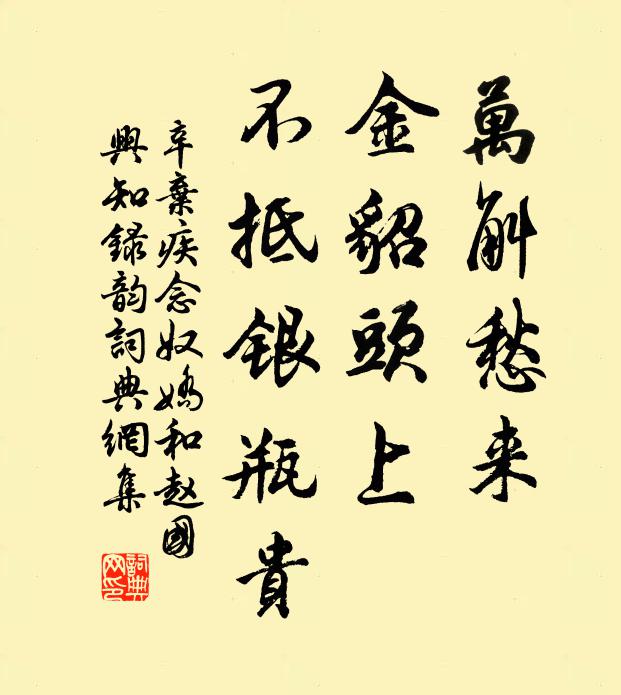 萬斛愁来
金貂頭上
不抵銀瓶貴
辛棄疾念奴嬌和赵國
興知録韵詞典網集
詞典
网印